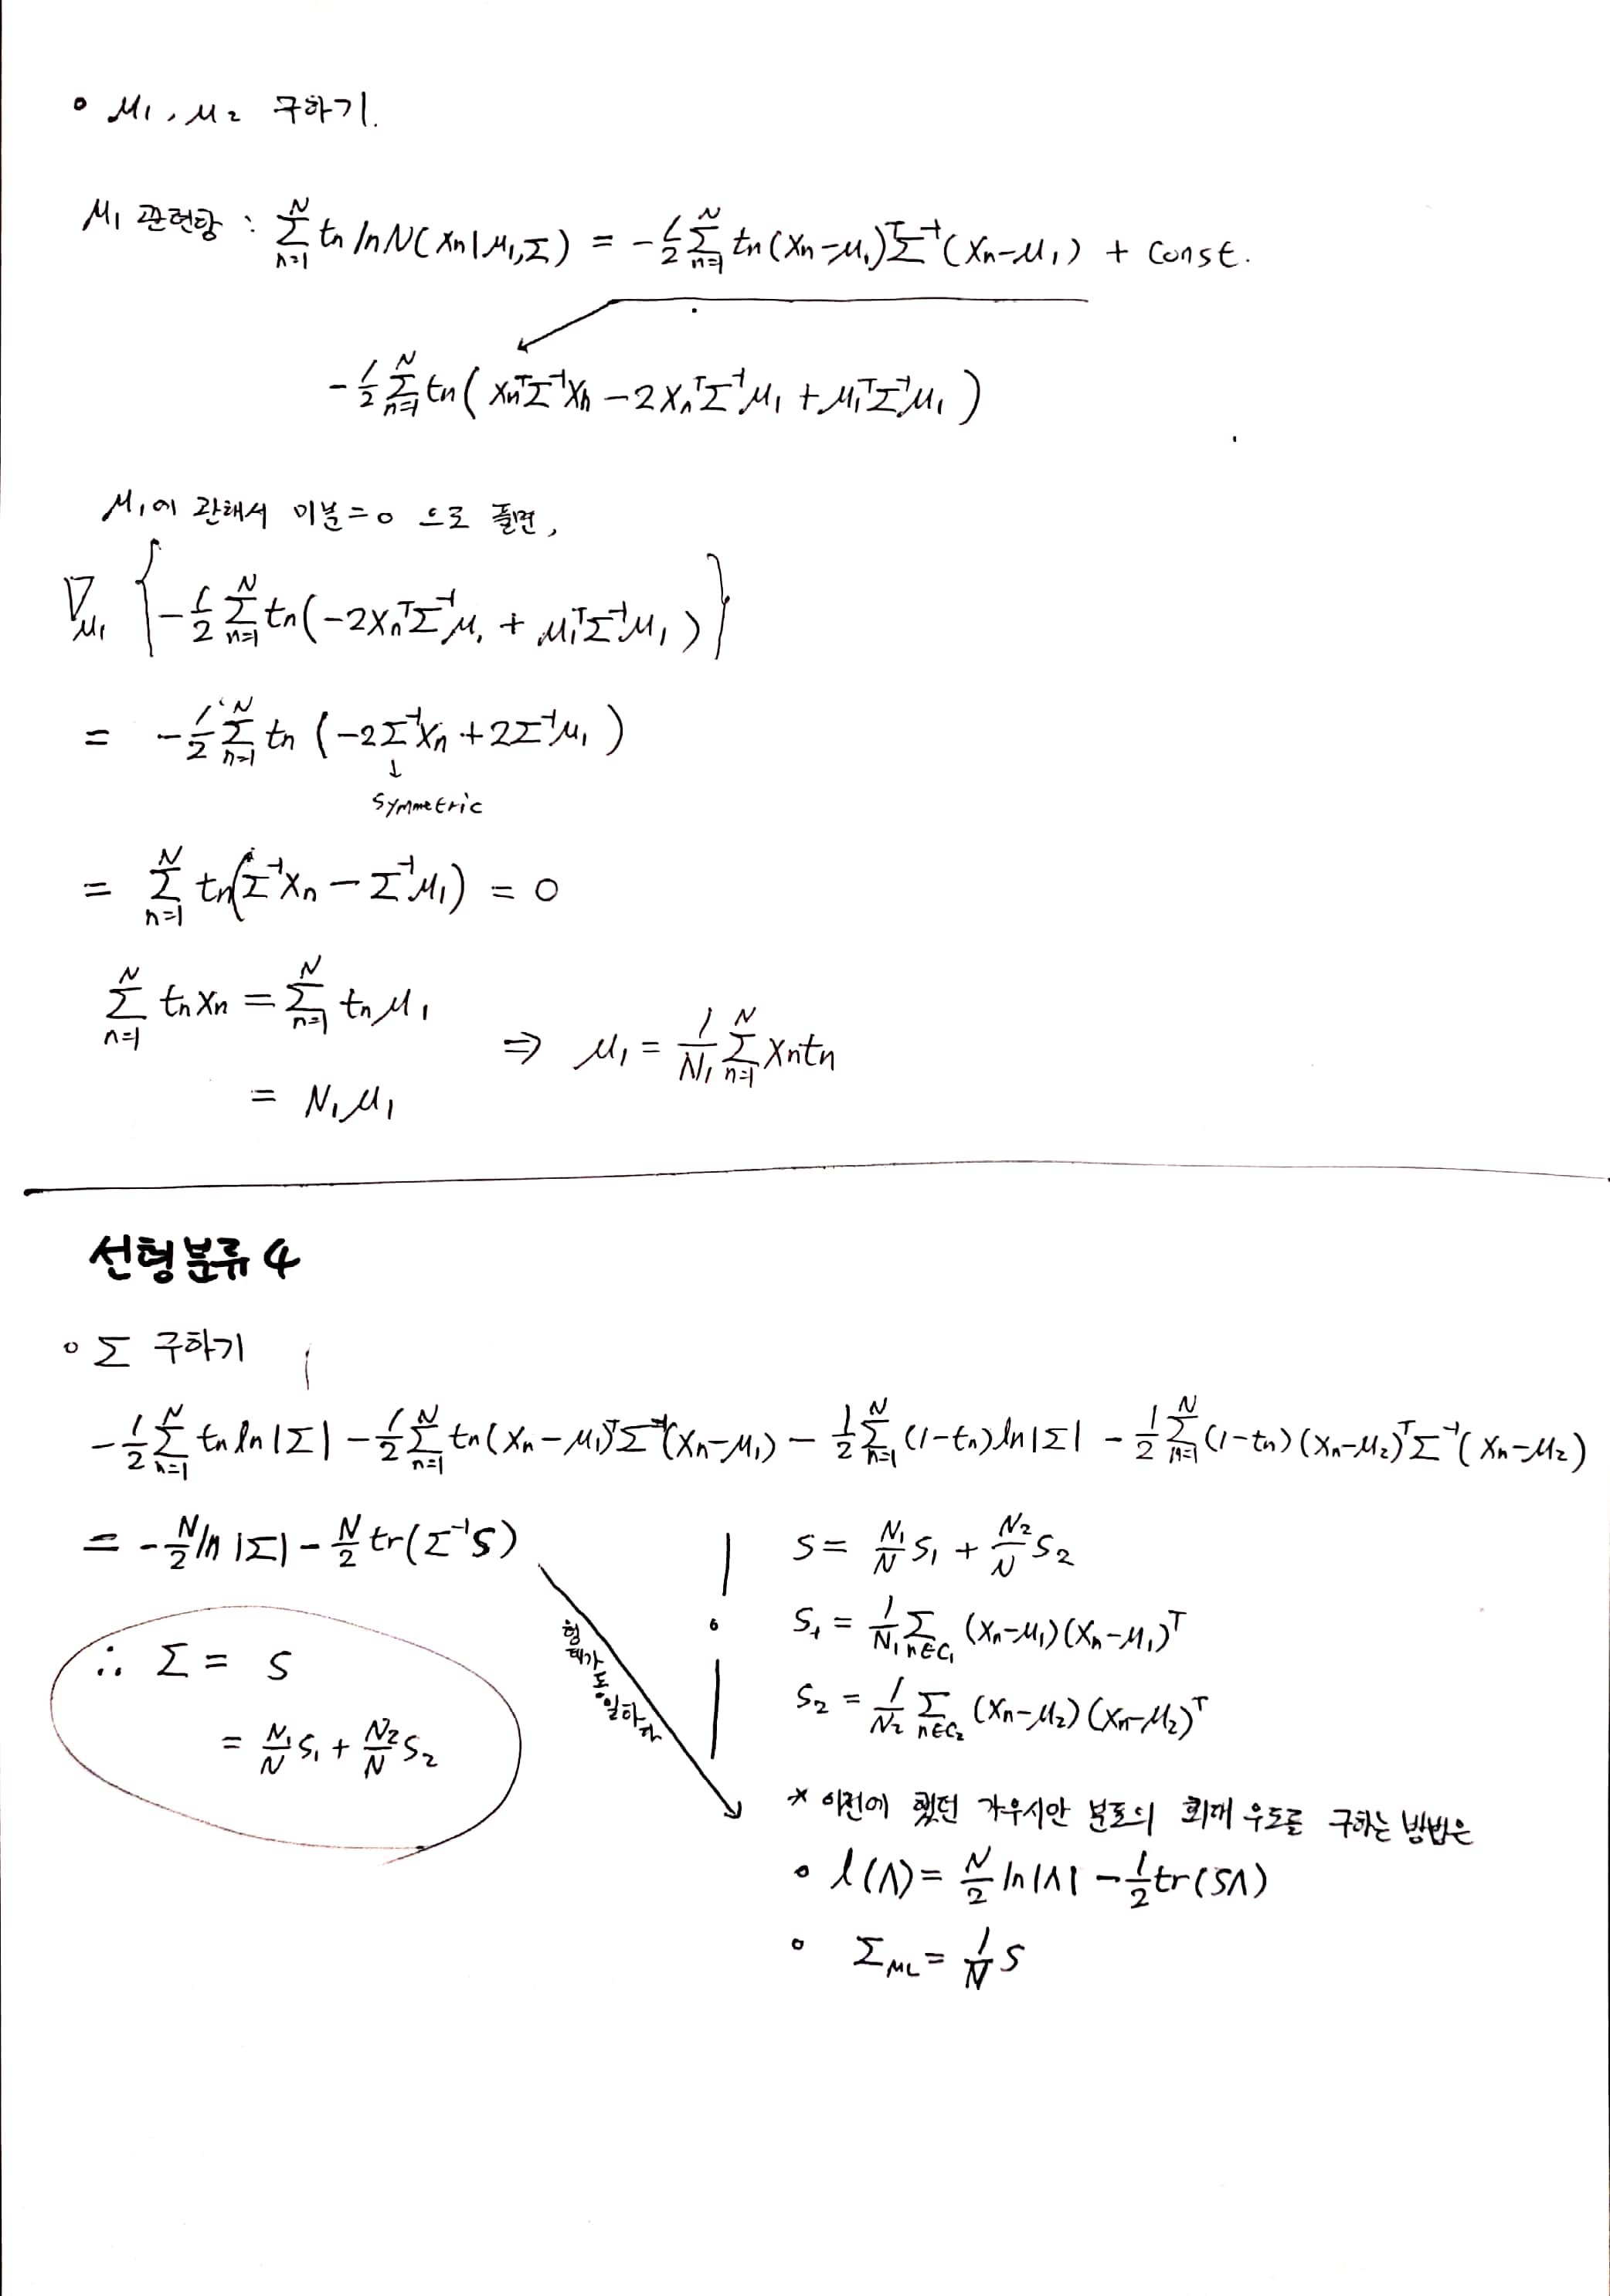 ° μ₁, μ₂ 구하기.
μ₁ 관련항 : Σ_{n=1}^{N} tₙ ln N(xₙ|μ₁,Σ) = -1/2 Σ_{n=1}^{N} tₙ(xₙ-μ₁)ᵀΣ⁻¹(xₙ-μ₁) + const.
-1/2 Σ_{n=1}^{N} tₙ( xₙᵀΣ⁻¹xₙ - 2xₙᵀΣ⁻¹μ₁ + μ₁ᵀΣ⁻¹μ₁ )
μ₁에 관해서 미분=0 으로 풀면,
∇_{μ₁} { -1/2 Σ_{n=1}^{N} tₙ(-2xₙᵀΣ⁻¹μ₁ + μ₁ᵀΣ⁻¹μ₁) }
= -1/2 Σ_{n=1}^{N} tₙ (-2Σ⁻¹xₙ + 2Σ⁻¹μ₁)
↓
symmetric
= Σ_{n=1}^{N} tₙ(Σ⁻¹xₙ - Σ⁻¹μ₁) = 0
Σ_{n=1}^{N} tₙxₙ = Σ_{n=1}^{N} tₙμ₁
= N₁μ₁
⇒ μ₁ = 1/N₁ Σ_{n=1}^{N} xₙtₙ
선형분류 4
° Σ 구하기
-1/2 Σ_{n=1}^{N} tₙ ln|Σ| - 1/2 Σ_{n=1}^{N} tₙ(xₙ-μ₁)ᵀΣ⁻¹(xₙ-μ₁) - 1/2 Σ_{n=1}^{N} (1-tₙ) ln|Σ| - 1/2 Σ_{n=1}^{N} (1-tₙ)(xₙ-μ₂)ᵀΣ⁻¹(xₙ-μ₂)
= -N/2 ln|Σ| - N/2 tr(Σ⁻¹S)
∴ Σ = S
= N₁/N S₁ + N₂/N S₂
형태가 동일하다
S = N₁/N S₁ + N₂/N S₂
S₁ = 1/N₁ Σ_{n∈C₁} (xₙ-μ₁)(xₙ-μ₁)ᵀ
S₂ = 1/N₂ Σ_{n∈C₂} (xₙ-μ₂)(xₙ-μ₂)ᵀ
* 이전에 했던 가우시안 분포의 최대 우도를 구하는 방법은
° l(Λ) = N/2 ln|Λ| - 1/2 tr(SΛ)
° Σ_{ML} = 1/N S